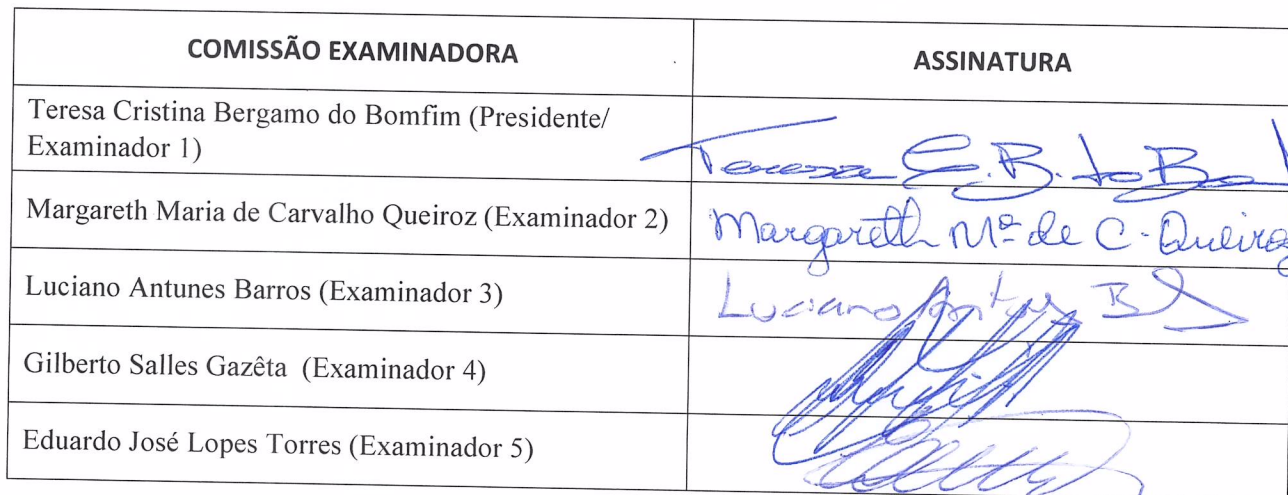 COMISSÃO EXAMINADORA
ASSINATURA
Teresa Cristina Bergamo do Bomfim (Presidente/
Examinador 1)
Teresa C.B. do Bo
Margareth Maria de Carvalho Queiroz (Examinador 2)
Margareth Mª de C. Queiroz
Luciano Antunes Barros (Examinador 3)
Luciano Antunes B
Gilberto Salles Gazêta (Examinador 4)
Eduardo José Lopes Torres (Examinador 5)